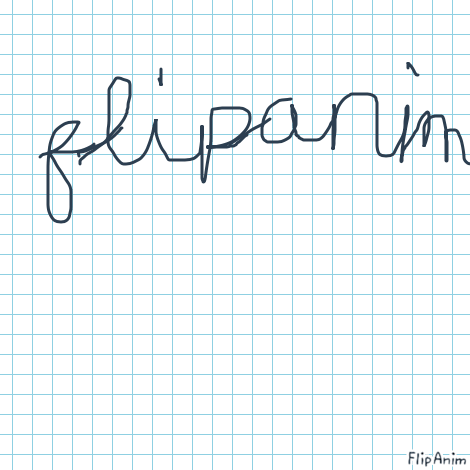 flipanim
FlipAnim